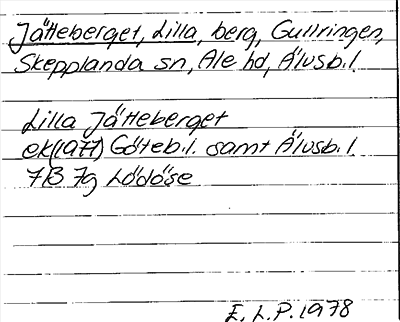 Jätteberget, Lilla, berg, Gullringen,
Skepplanda sn, Ale hd, Älvsb.l.
Lilla Jätteberget
ek(1977) Göteb.l. samt Älvsb.l.
7B 7g Lödöse
E.L.P.1978